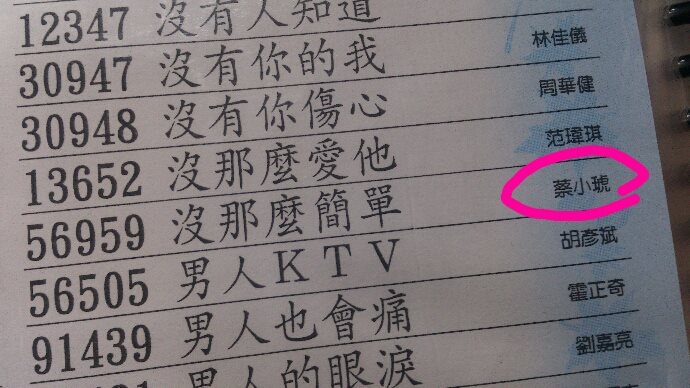 12347 沒有人知道
30947 沒有你的我 林佳儀
30948 沒有你傷心 周華健
13652 沒那麼愛他 范瑋琪
56959 沒那麼簡單 蔡小琥
56505 男人KTV 胡彥斌
91439 男人也會痛 霍正奇
男人的眼淚 劉嘉亮